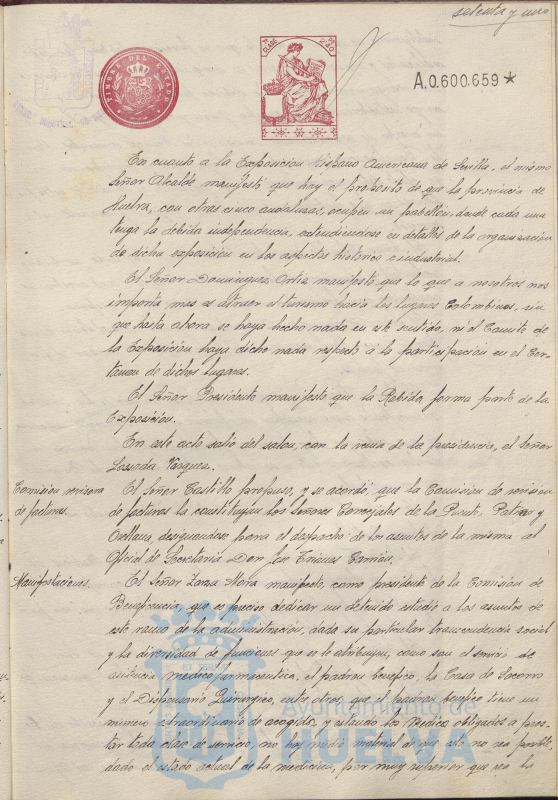 setenta y uno
TIMBRE DEL ESTADO
CLASE
A.0.600.659*
En cuanto a la Exposición Hispano Americana de Sevilla, el mismo
Señor Alcalde manifestó que hay el propósito de que la provincia de
Huelva, con otras cinco andaluzas, ocupen un pabellon, donde cada una
tenga la debida independencia, extendiendose en detalles de la organización
de dicha exposición en los aspectos histórico e industrial.
El Señor Dominguez Ortiz manifestó que lo que a nosotros nos
importa, mas es atraer el turismo hacia los lugares Colombinos, sin
que hasta ahora se haya hecho nada en este sentido, ni el Comité de
la Exposición haya dicho nada respecto a la participación en el Cer-
tamen de dichos lugares.
El Señor Presidente manifestó que la Rabida forma parte de la
Exposición.
En este acto salió del salon, con la venia de la presidencia, el Señor
Losada Vazquez.
Comisión revisora
de facturas.
El Señor Castillo propuso, y se acordó, que la Comisión de revisión
de facturas la constituyan los Señores Concejales de la Puente, Patiño y
Orellana, designandose para el despacho de los asuntos de la misma al
Oficial de Secretaría Don José Trianes Carrión.
Manifestaciones.
El Señor Zarza Mora manifestó, como presidente de la Comisión de
Beneficencia, que es preciso dedicar un detenido estudio a los asuntos de
este ramo de la administración, dada su particular trascendencia social
y la diversidad de funciones que se le atribuyen, como son el servicio de
asistencia medico farmaceutica, el padron benefico, la Casa de Socorro
y el Dispensario Quirurgico, entre otros; que el padron benefico tiene un
numero extraordinario de acogidos, y estando los Medicos obligados a pres-
tar toda clase de servicio, no hay medio material de que esto no sea posible,
dado el estado actual de la medicina, por muy superior que sea la
Ayuntamiento de
HUELVA